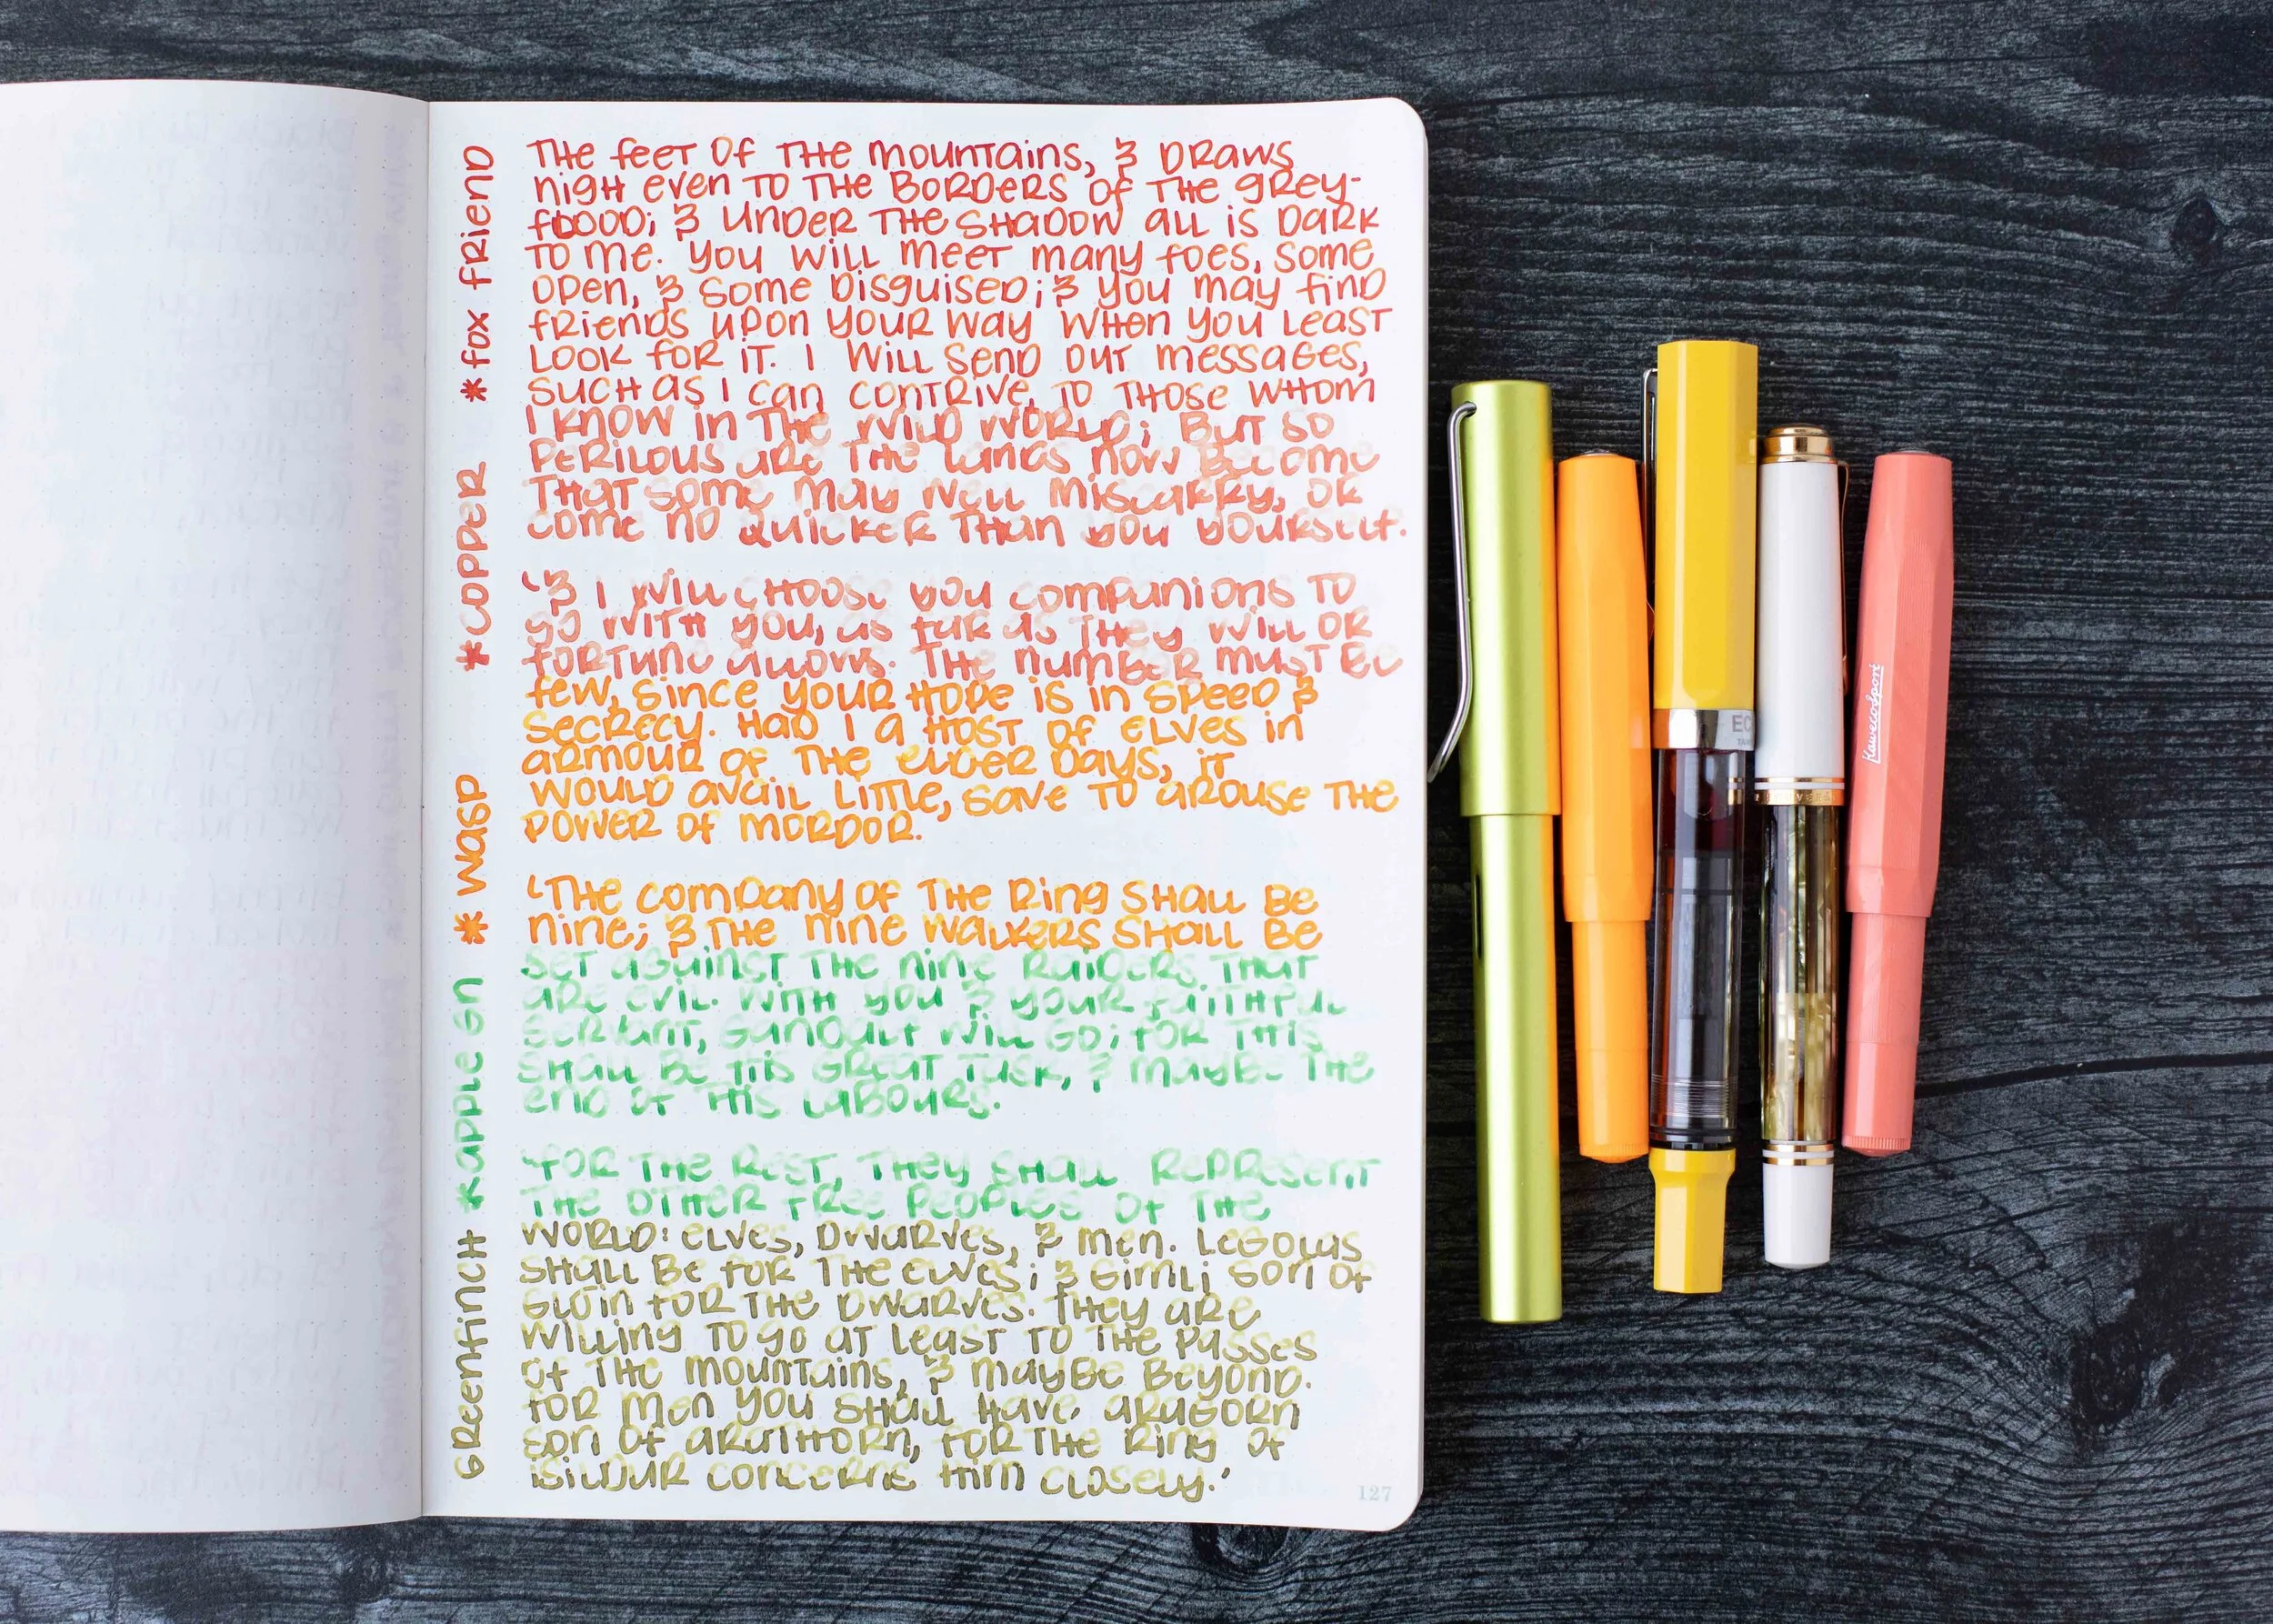 The feet of the mountains, & draws
nigh even to the borders of the Grey-
flood; & under the shadow all is dark
to me. You will meet many foes, some
open, & some disguised; & you may find
friends upon your way when you least
look for it. I will send out messages,
such as I can contrive, to those whom
I know in the wild world; but so
perilous are the lands now become
that some may well miscarry, or
come no quicker than you yourself.
'& I will choose you companions to
go with you, as far as they will or
fortune allows. The number must be
few, since your hope is in speed &
secrecy. Had I a host of elves in
armour of the elder days, it
would avail little, save to arouse the
power of Mordor.
'The company of the Ring shall be
nine; & the nine walkers shall be
set against the nine raiders that
are evil. With you & your faithful
servant, Gandalf will go; for this
shall be his great task, & maybe the
end of his labours.
'For the rest, they shall represent
the other free peoples of the
world: elves, dwarves, & men. Legolas
shall be for the elves; & Gimli son of
Gloin for the dwarves. They are
willing to go at least to the passes
of the mountains, & maybe beyond.
For men you shall have Aragorn
son of Arathorn, for the Ring of
Isildur concerns him closely.'
*Fox Friend
*Copper
*Wasp
*Apple Gn
Greenfinch
127
EC
Kaweco Sport